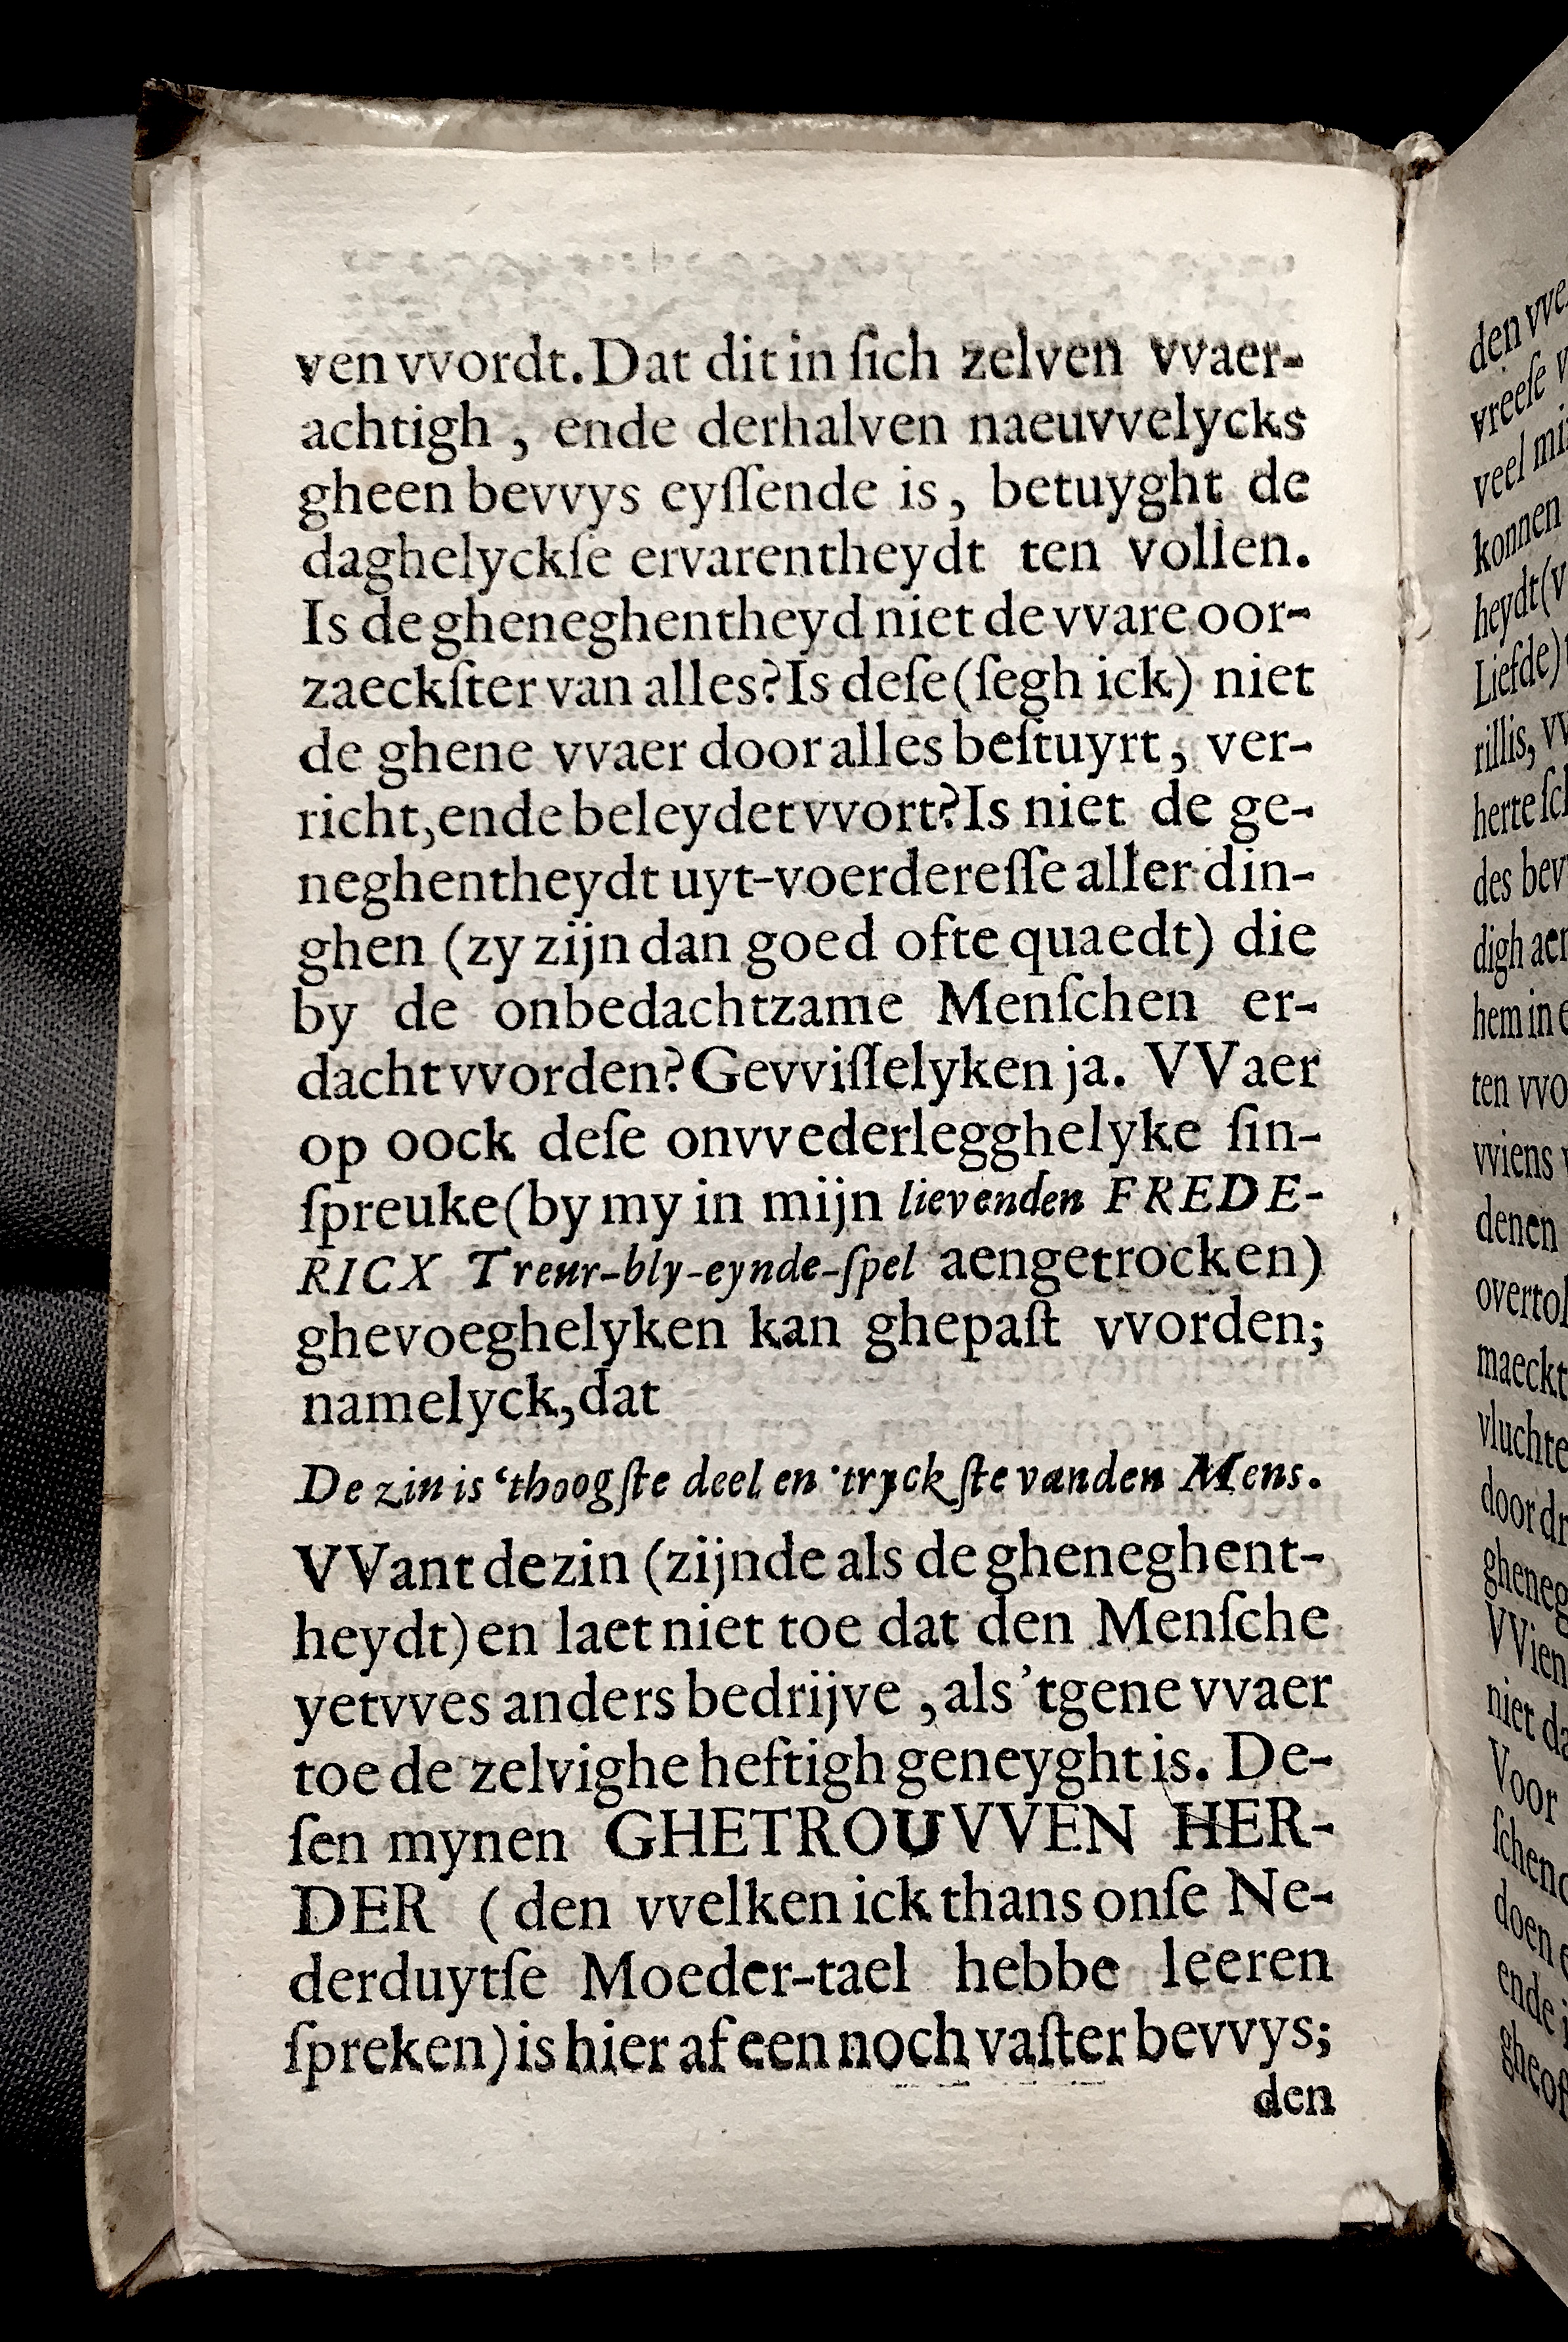 ven vvordt. Dat dit in ſich zelven vvaer-
achtigh, ende derhalven naeuvvelycks
gheen bevvys eyſſende is, betuyght de
daghelyckſe ervarentheydt ten vollen.
Is de gheneghentheyd niet de vvare oor-
zaeckſter van alles? Is deſe (ſegh ick) niet
de ghene vvaer door alles beſtuyrt, ver-
richt, ende beleydet vvort? Is niet de ge-
neghentheydt uyt-voerdereſſe aller din-
ghen (zy zijn dan goed ofte quaedt) die
by de onbedachtzame Menſchen er-
dacht vvorden? Gevviſſelyken ja. VVaer
op oock deſe onvvederlegghelyke ſin-
ſpreuke (by my in mijn lievenden FREDE-
RICX Treur-bly-eynde-ſpel aengetrocken)
ghevoeghelyken kan ghepaſt vvorden;
namelyck, dat
De zin is ‘thoogſte deel en ’tryckſte vanden Mens.
VVant de zin (zijnde als de gheneghent-
heydt) en laet niet toe dat den Menſche
yetvves anders bedrijve, als ’tgene vvaer
toe de zelvighe heftigh geneyght is. De-
ſen mynen GHETROUVVEN HER-
DER (den vvelken ick thans onſe Ne-
derduytſe Moeder-tael hebbe leeren
ſpreken) is hier af een noch vaſter bevvys;
den
den vve
vreeſe v
veel mi
konnen
heydt (v
Liefde)
rillis, vv
herte ſc
des bev
digh aer
hem in
ten vvo
vviens
denen
overtol
maeckt
vluchte
door dr
gheneg
VVien
niet da
Voor
ſchen
doen
ende
gheof